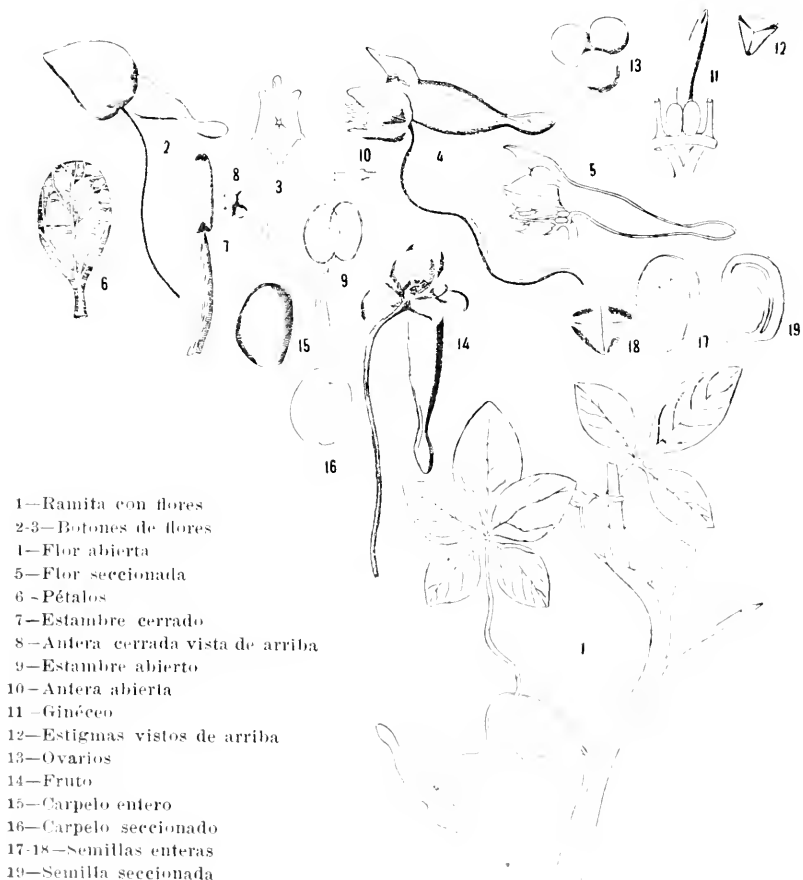 2
3
10
4
13
11
12
5
6
8
7
9
15
14
16
18
17
19
1
1—Ramita con flores
2-3—Botones de flores
1—Flor abierta
5—Flor seccionada
6-Pétalos
7—Estambre cerrado
8—Antera cerrada vista de arriba
9—Estambre abierto
10—Antera abierta
11—Ginéceo
12—Estigmas vistos de arriba
13—Ovarios
14—Fruto
15—Carpelo entero
16—Carpelo seccionado
17-18—Semillas enteras
19—Semilla seccionada